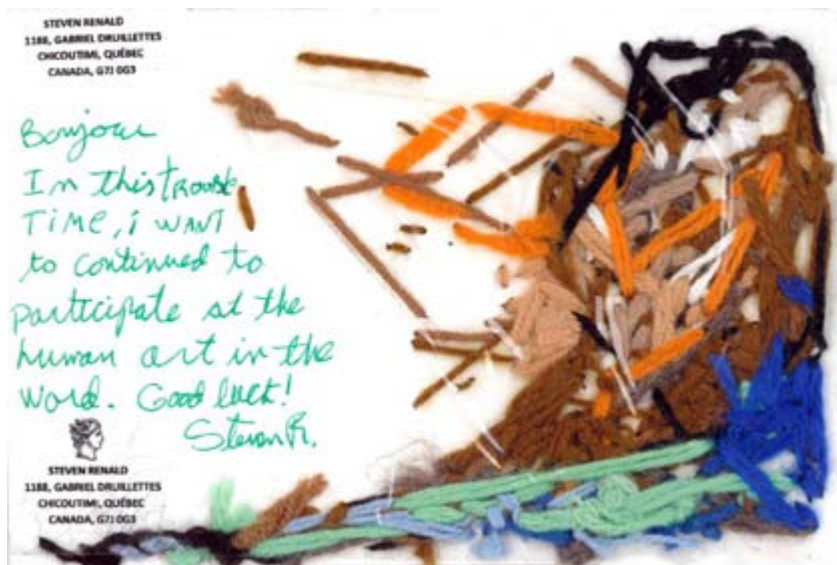 STEVEN RENALD
1188, GABRIEL DRUILLETTES
CHICOUTIMI, QUÉBEC
CANADA, G7J 0G3
Bonjour
In this trouble
TIME, i WANT
to continued to
participate at the
human art in the
Word. Good luck!
Steven R.
STEVEN RENALD
1188, GABRIEL DRUILLETTES
CHICOUTIMI, QUÉBEC
CANADA, G7J 0G3